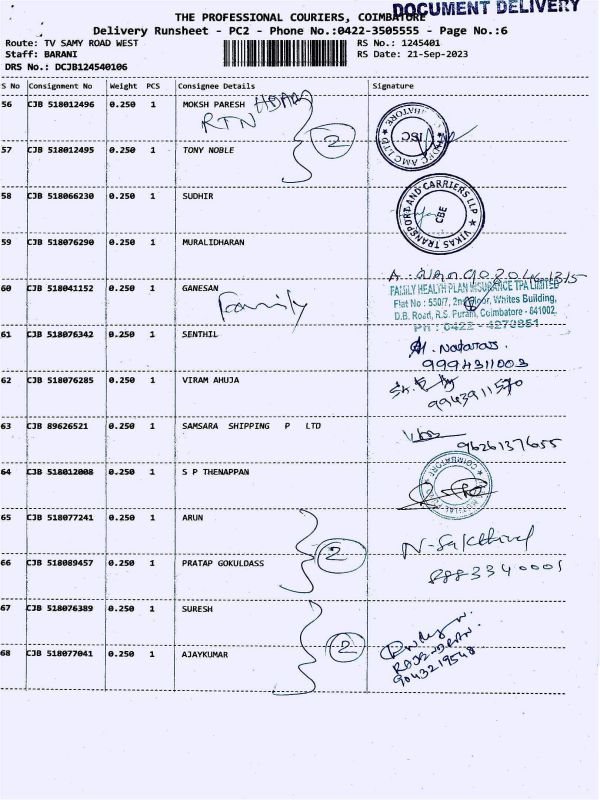 DOCUMENT DELIVERY
THE PROFESSIONAL COURIERS, COIMBATORE
Delivery Runsheet - PC2 - Phone No.:0422-3505555 - Page No.:6
Route: TV SAMY ROAD WEST RS No.: 1245401
Staff: BARANI RS Date: 21-Sep-2023
DRS No.: DCJB124540106
S No Consignment No Weight PCS Consignee Details Signature
56 CJB 518012496 0.250 1 MOKSH PARESH
RTN
2
57 CJB 518012495 0.250 1 TONY NOBLE
58 CJB 518066230 0.250 1 SUDHIR
VIKAS TRANSPORT AND CARRIERS LLP
CBE
59 CJB 518076290 0.250 1 MURALIDHARAN
60 CJB 518041152 0.250 1 GANESAN
Family
FAMILY HEALTH PLAN INSURANCE TPA LIMITED
Flat No : 550/7, 2nd Floor, Whites Building,
D.B. Road, R.S. Puram, Coimbatore - 641002.
PH : 0422 - 4270851
61 CJB 518076342 0.250 1 SENTHIL
M. Nataraj.
9994311003
62 CJB 518076285 0.250 1 VIRAM AHUJA
9943911570
63 CJB 89626521 0.250 1 SAMSARA SHIPPING P LTD
9626137655
64 CJB 518012008 0.250 1 S P THENAPPAN
COIMBATORE
65 CJB 518077241 0.250 1 ARUN
2
N-Sakthivel
8883340001
66 CJB 518089457 0.250 1 PRATAP GOKULDASS
67 CJB 518076389 0.250 1 SURESH
2
RAJENDRAN
9043219548
68 CJB 518077041 0.250 1 AJAYKUMAR